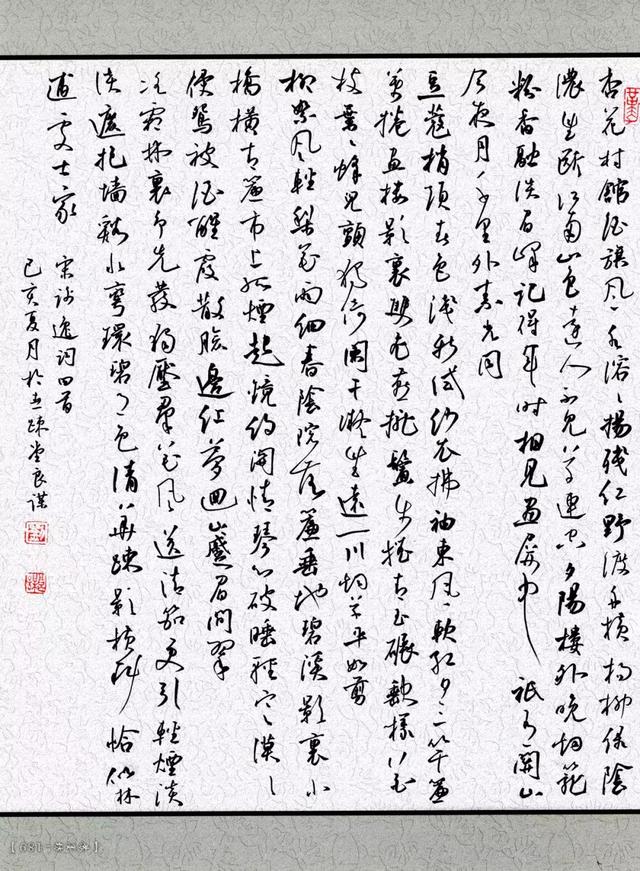 杏花村館酒旗風水溶溶揚殘紅野渡舟橫楊柳綠陰
濃望斷江南山色遠人不見草連空夕陽樓外晚煙籠
粉香融淡眉峰記得年時相見畫屏中祇有關山
今夜月千里外素光同
豆蔻梢頭春色淺新試紗衣拂袖東風軟紅日三竿簾
幕捲畫樓影裏雙飛燕攏鬢步搖青玉碾缺樣花
枝葉葉蜂兒顫獨倚闌干凝望遠一川煙草平如剪
柳絮風輕梨花雨細春陰院落簾垂地碧溪影裏小
橋橫青簾市上孤煙起鏡約關情琴心破睡輕寒漠漠
侵鴛被酒醒霞散臉邊紅夢回山蹙眉間翠
冰霜林裏爭先發獨壓群花風送清笳更引輕煙淡
淡遮抱墻溪水彎環碧月色清華疎影橫斜恰似林
逋處士家
宋謝逸詞四首
己亥夏月於疎堂良謀